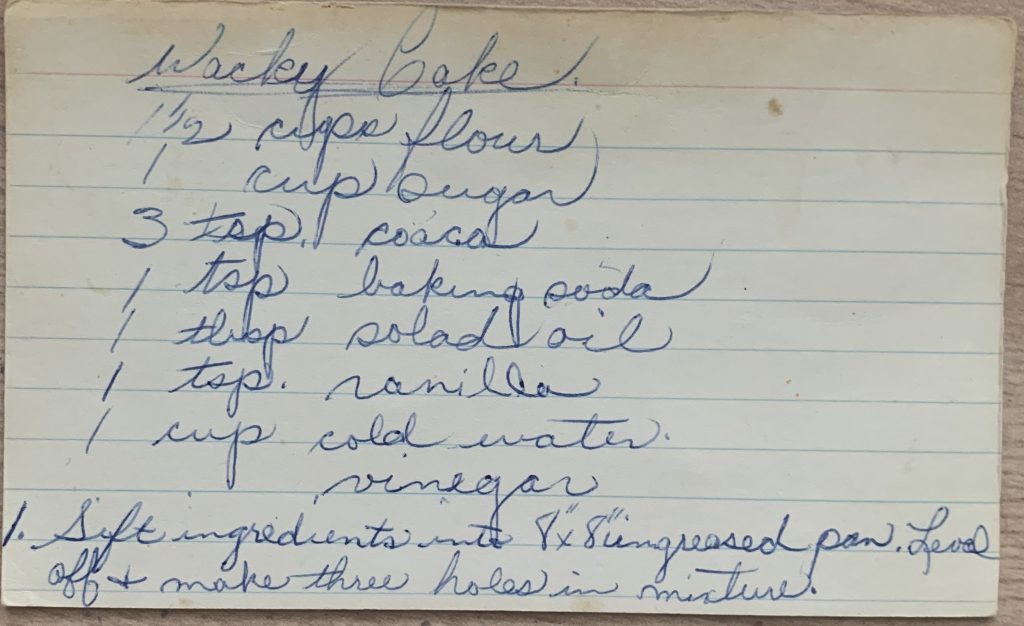 Wacky Cake.
1 1/2 cups flour
1 cup sugar
3 tsp. coaca
1 tsp baking soda
1 tbsp salad oil
1 tsp. vanilla
1 cup cold water.
vinegar
1. Sift ingredients into 8"x8" ungreased pan. Level
off + make three holes in mixture.